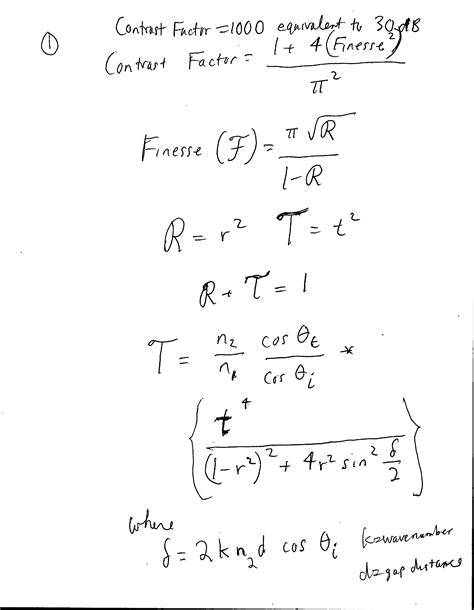 ① Contrast Factor = 1000 equivalent to 30 dB
Contrast Factor = 1 + 4 (Finesse²) / π²
Finesse (ℱ) = π √R / 1-R
R = r² T = t²
R + T = 1
T = n₂ / n₁ cos θt / cos θi *
{ t⁴ / (1-r²)² + 4r² sin² δ/2 }
where
δ = 2 k n₂ d cos θi k=wavenumber
d=gap distance